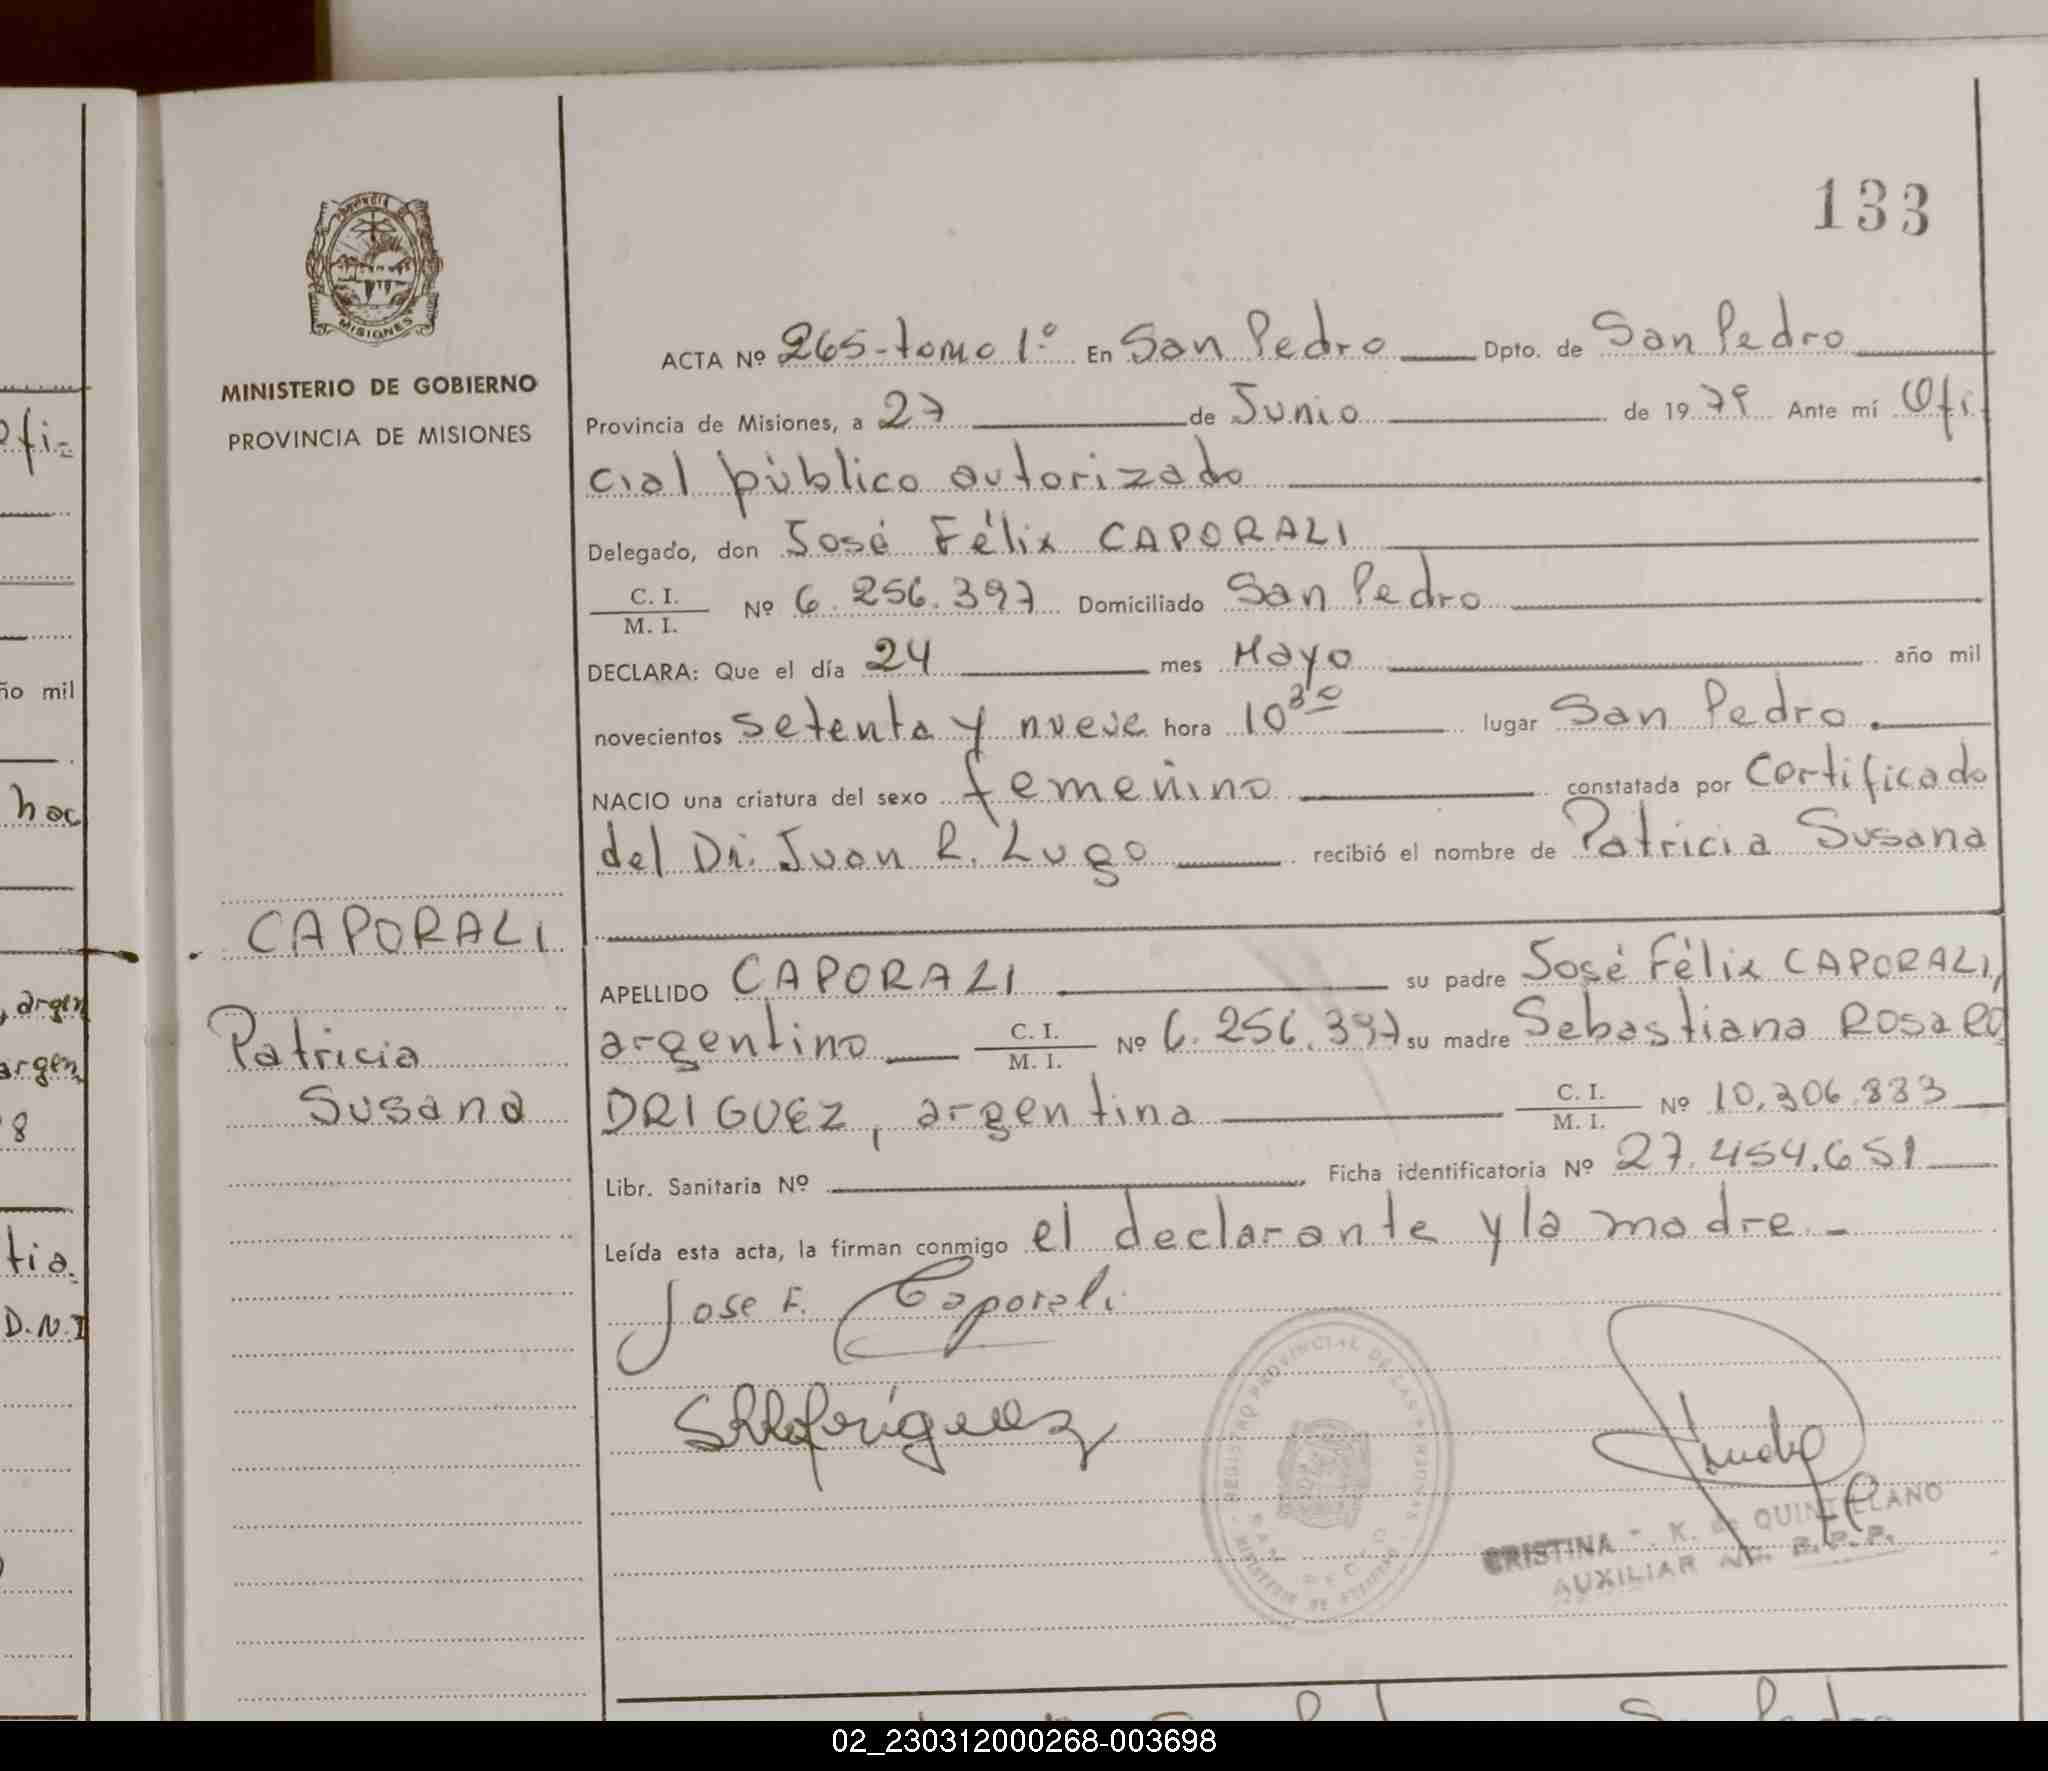 133
MISIONES
MINISTERIO DE GOBIERNO
PROVINCIA DE MISIONES
CAPORALI
Patricia
Susana
ACTA Nº 265-tomo 1º En San Pedro Dpto. de San Pedro
Provincia de Misiones, a 27 de Junio de 1979 Ante mí Ofi
cial público autorizado
Delegado, don José Félix CAPORALI
C. I.
M. I. Nº 6.256.397 Domiciliado San Pedro
DECLARA: Que el día 24 mes Mayo año mil
novecientos setenta y nueve hora 10 30 lugar San Pedro.
NACIO una criatura del sexo femenino constatada por Certificado
del Dr. Juan R. Lugo recibió el nombre de Patricia Susana
APELLIDO CAPORALI su padre José Félix CAPORALI,
argentino C. I.
M. I. Nº 6.256.397 su madre Sebastiana ROSA RO
DRIGUEZ, argentina C. I.
M. I. Nº 10.306.833
Libr. Sanitaria Nº Ficha identificatoria Nº 27.454.651
Leída esta acta, la firman conmigo el declarante y la madre -
Jose F. Caporali
SRRodríguez
REGISTRO PROVINCIAL DE LAS PERSONAS
CRISTINA K. de QUINTELLANO
AUXILIAR R.P.P.
Ofi-
ño mil
hac
, argen
argen
8
tia.
D.N.I
02_230312000268-003698